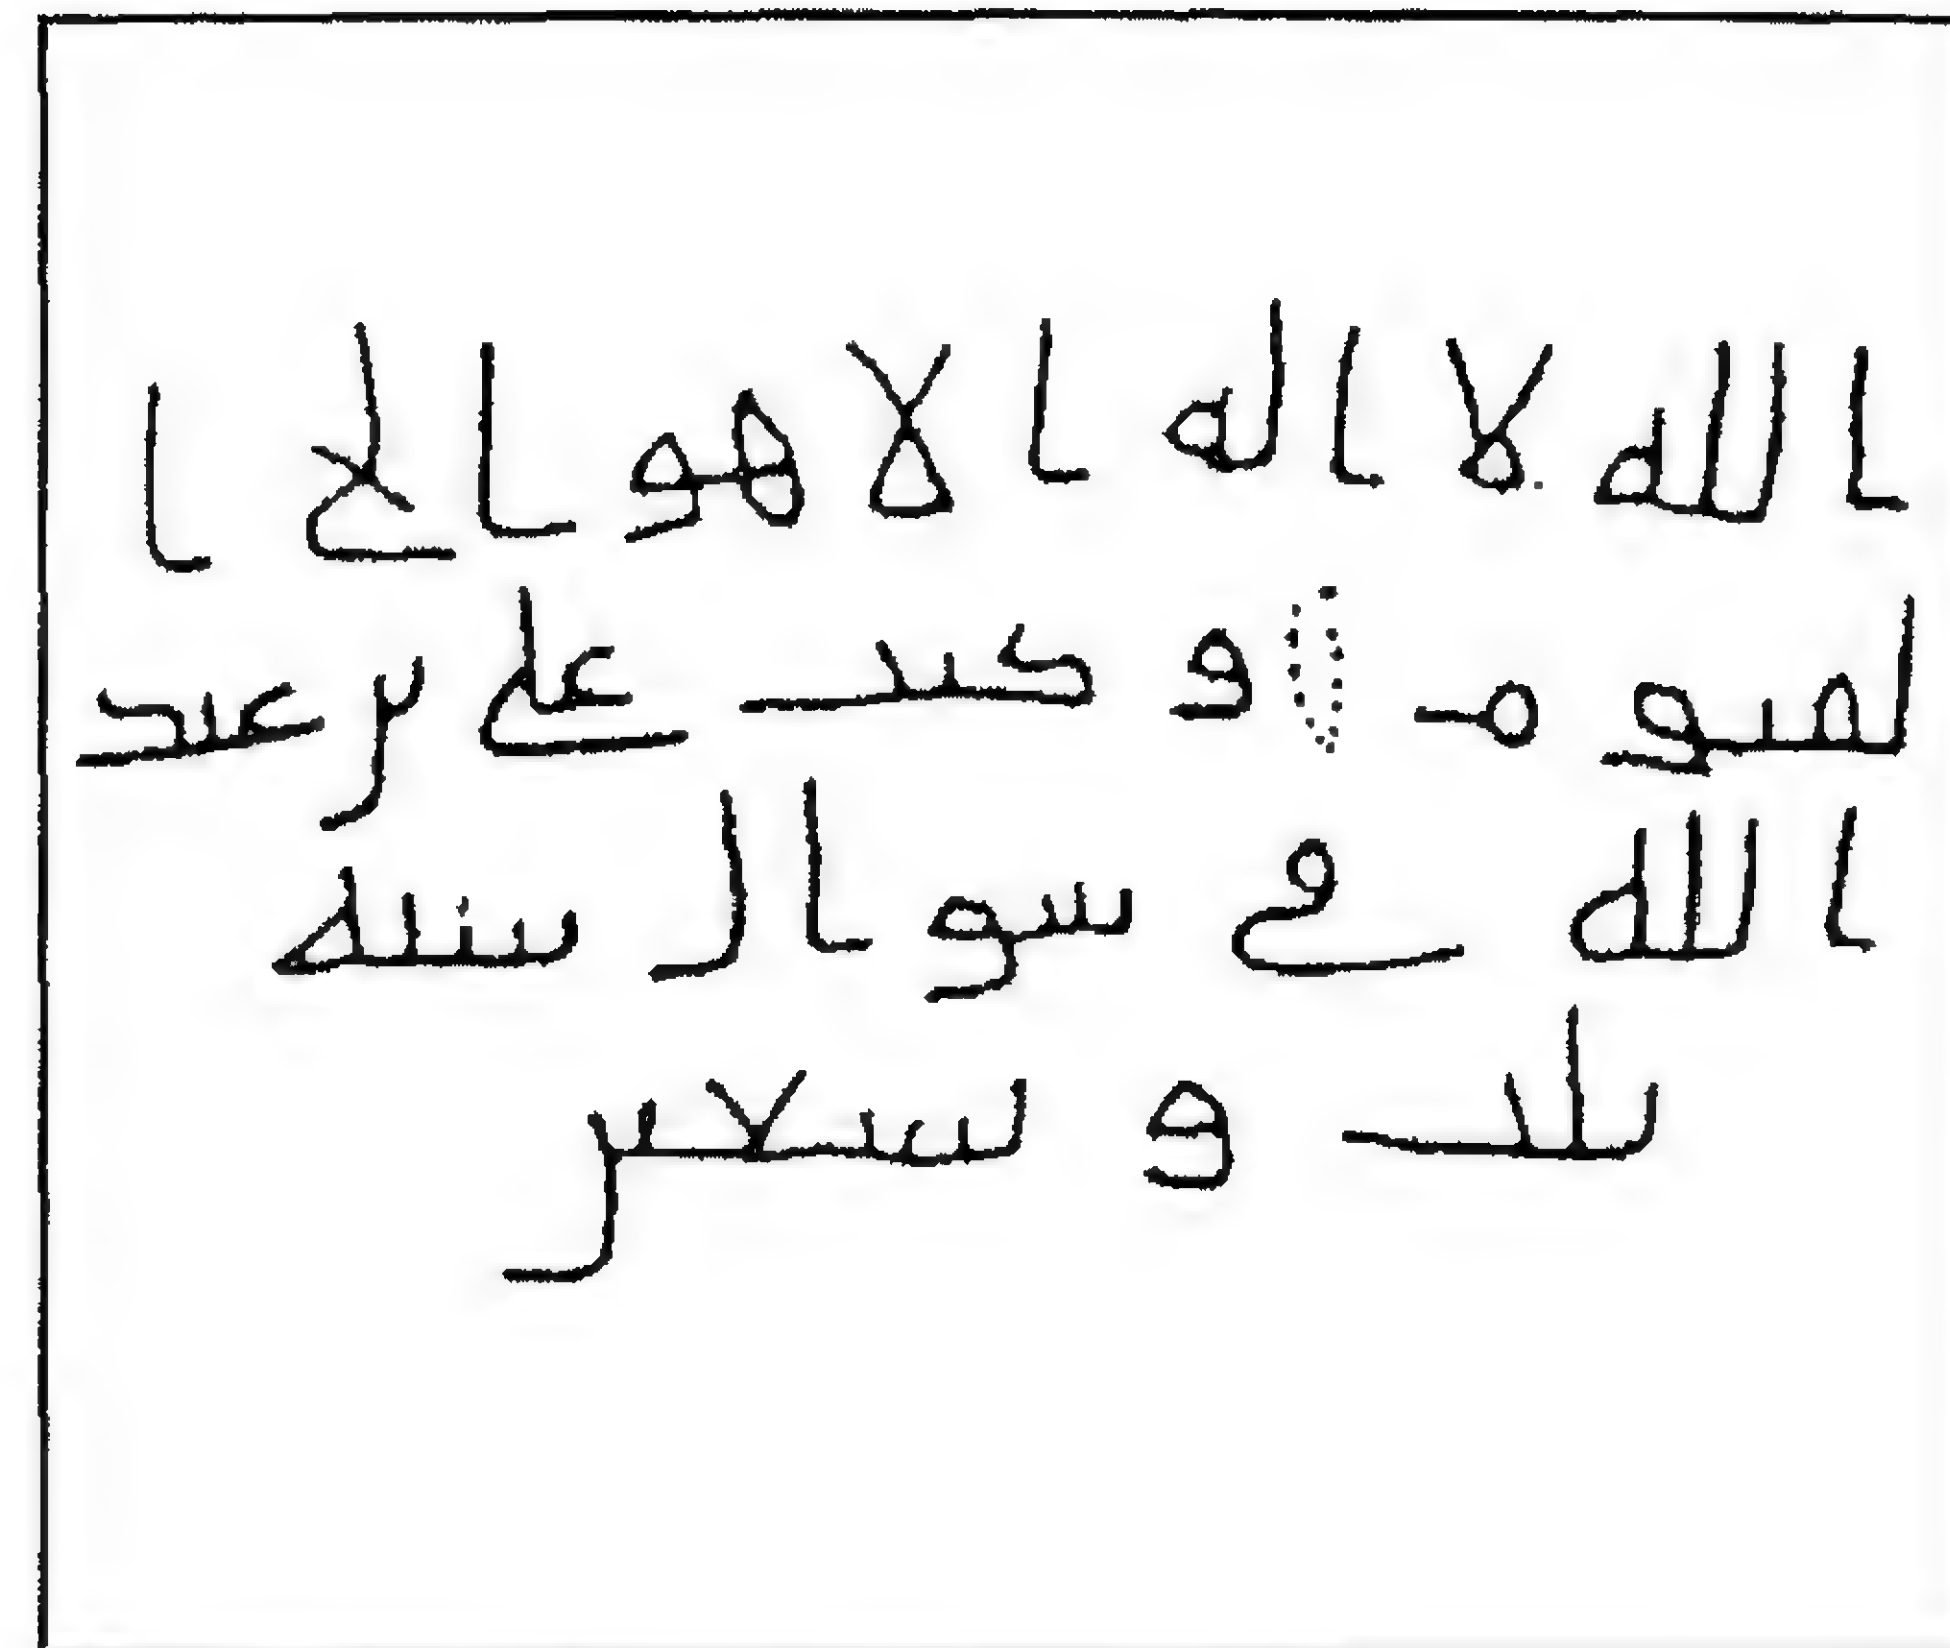 الله لا اله الا هو الحي ا
لقيوم و كتب علي بن عبد
الله في شوال سنة
ثلث و تسعين